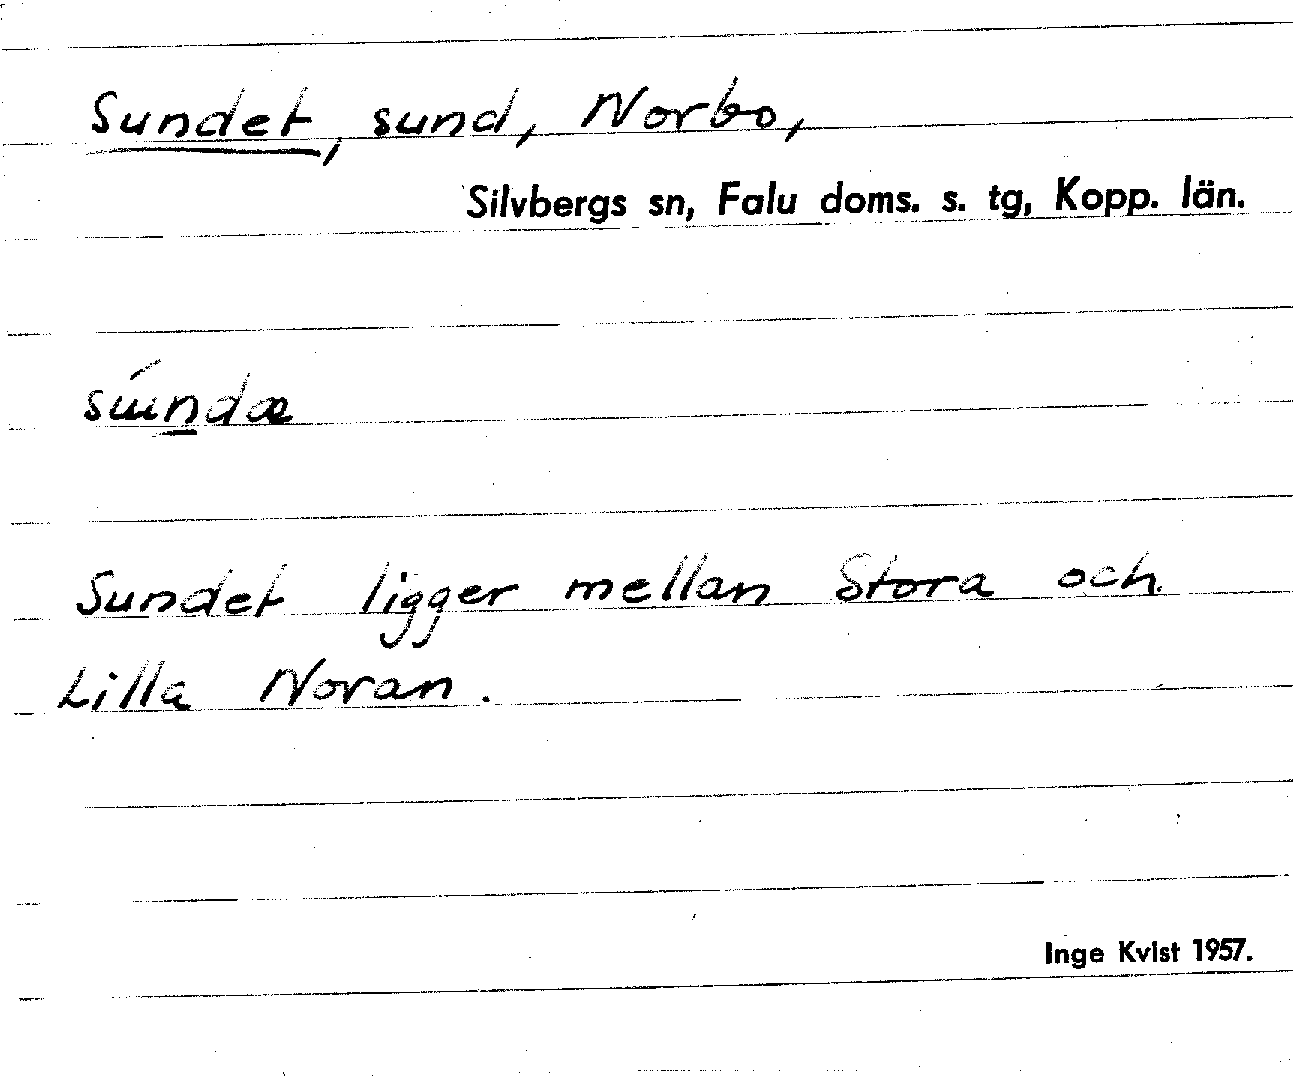 Sundet, sund, Norbo,
Silvbergs sn, Falu doms. s. tg, Kopp. län.
Sundet ligger mellan Stora och
Lilla Noran.
Inge Kvist 1957.